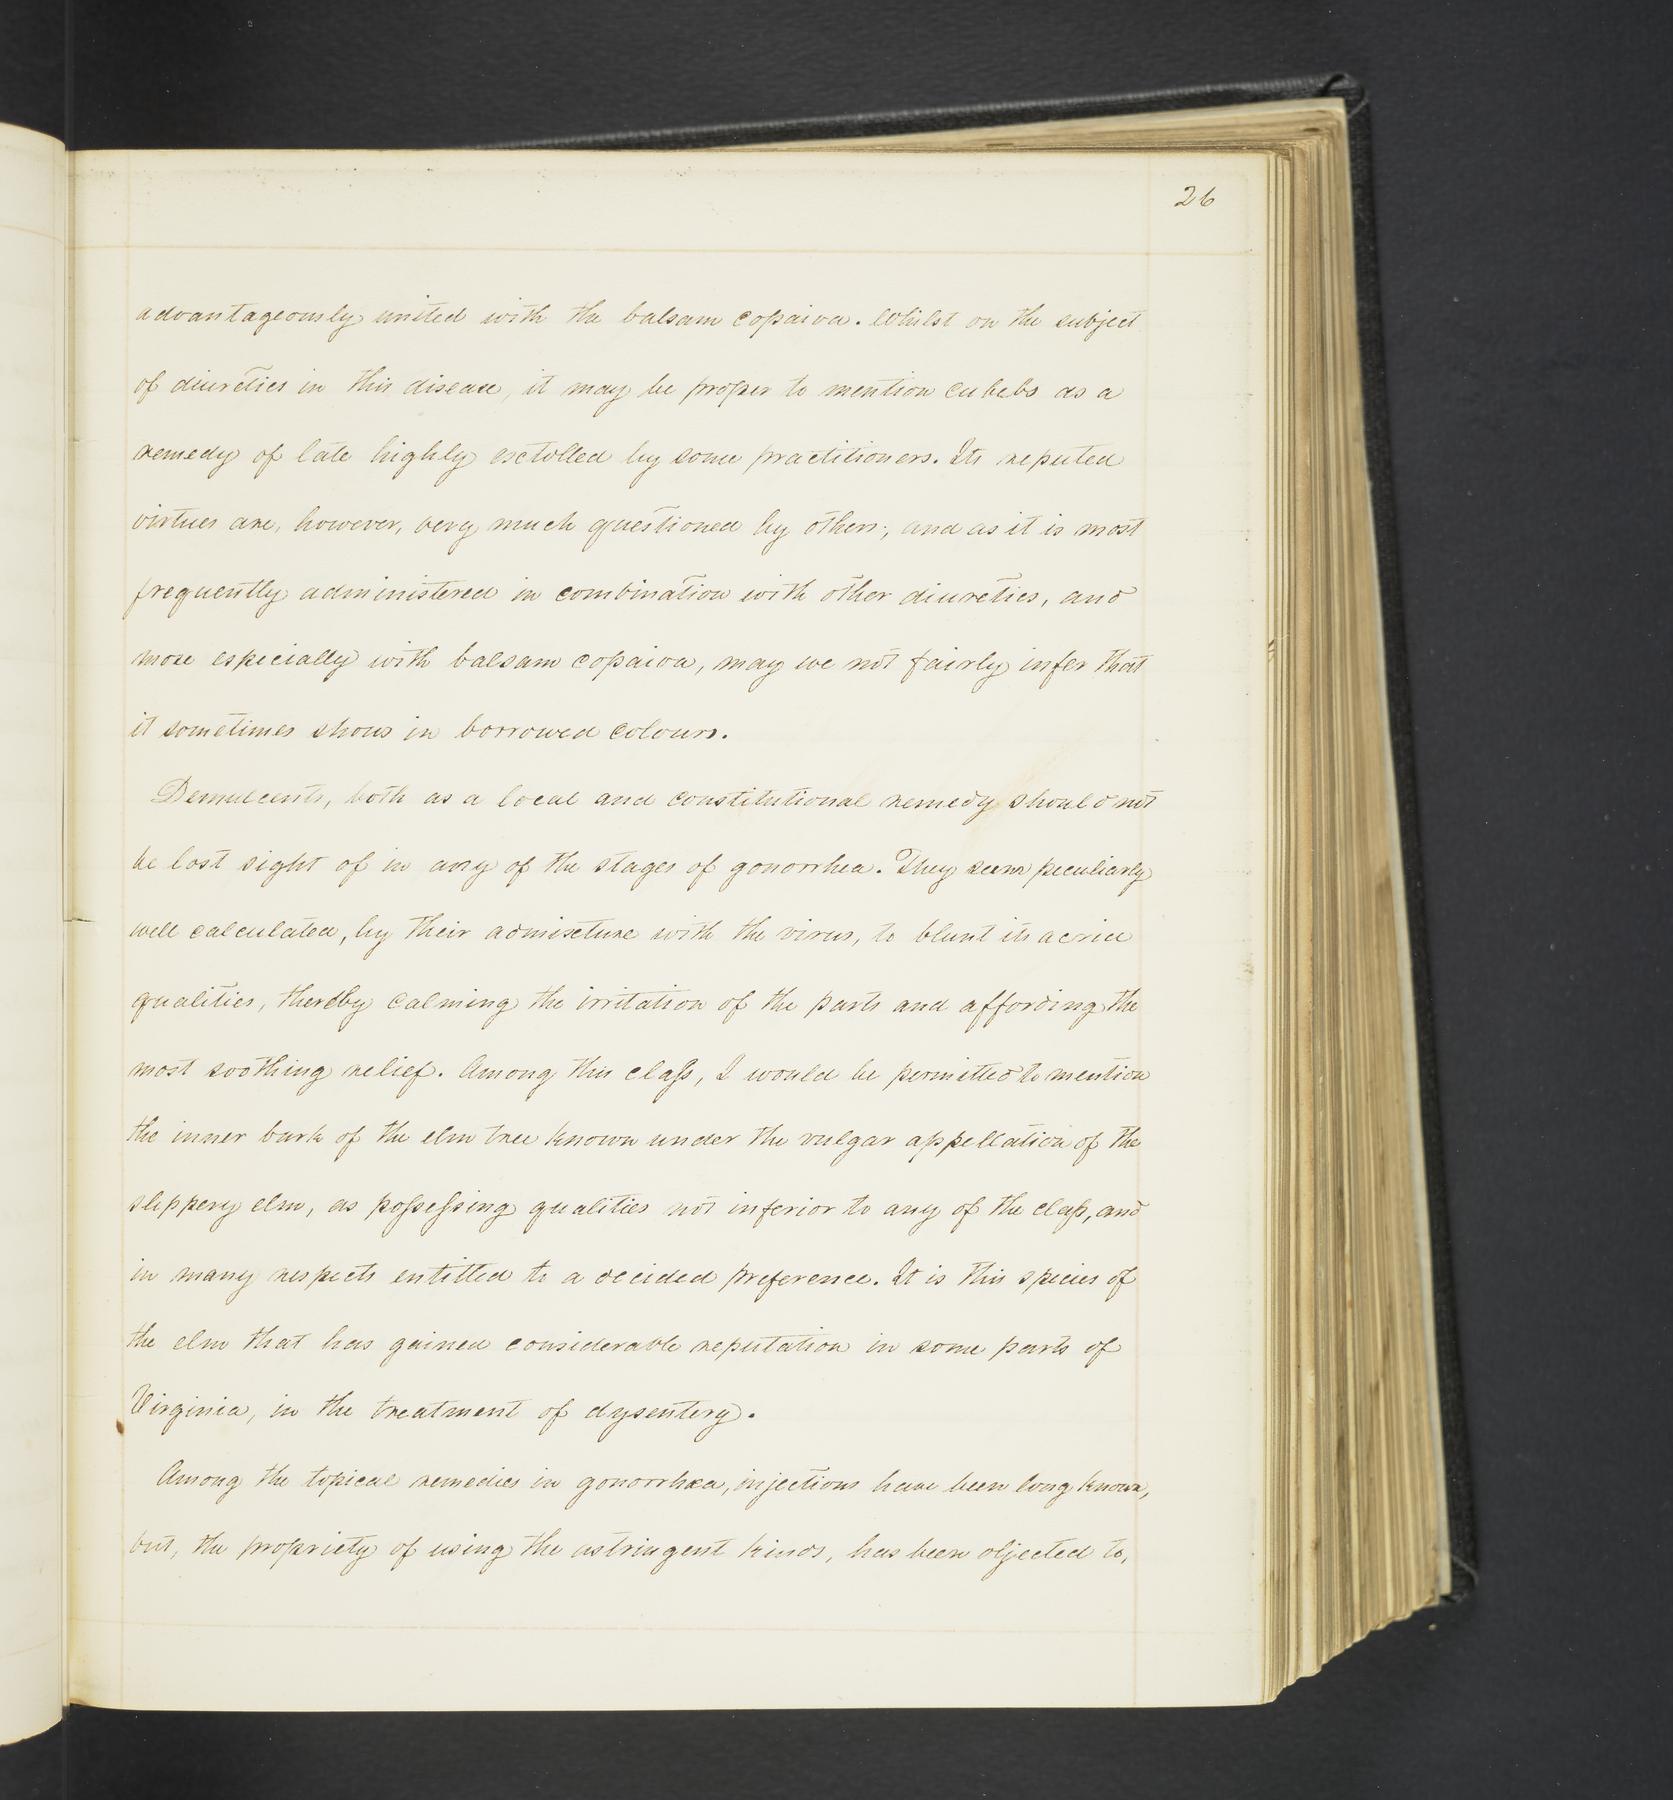 26
advantageously united with the balsam copaiva. Whilst on the subject
of diuretics in this disease, it may be proper to mention cubebs as a
remedy of late highly extolled by some practitioners. Its reputed
virtues are, however, very much questioned by others; and as it is most
frequently administered in combination with other diuretics, and
more especially with balsam copaiva, may we not fairly infer that
it sometimes shows in borrowed colours.
Demulcents, both as a local and constitutional remedy should not
be lost sight of in any of the stages of gonorrhea. They seem peculiarly
well calculated, by their admixture with the virus, to blunt its acrid
qualities, thereby calming the irritation of the parts and affording the
most soothing relief. Among this claſs, I would be permitted to mention
the inner bark of the elm tree known under the vulgar appellation of the
slippery elm, as poſseſsing qualities not inferior to any of the claſs, and
in many respects entitled to a decided preference. It is this species of
the elm that has gained considerable reputation in some parts of
Virginia, in the treatment of dysentery.
Among the topical remedies in gonorrhœa, injections have been long known,
but, the propriety of using the astringent kinds, has been objected to,